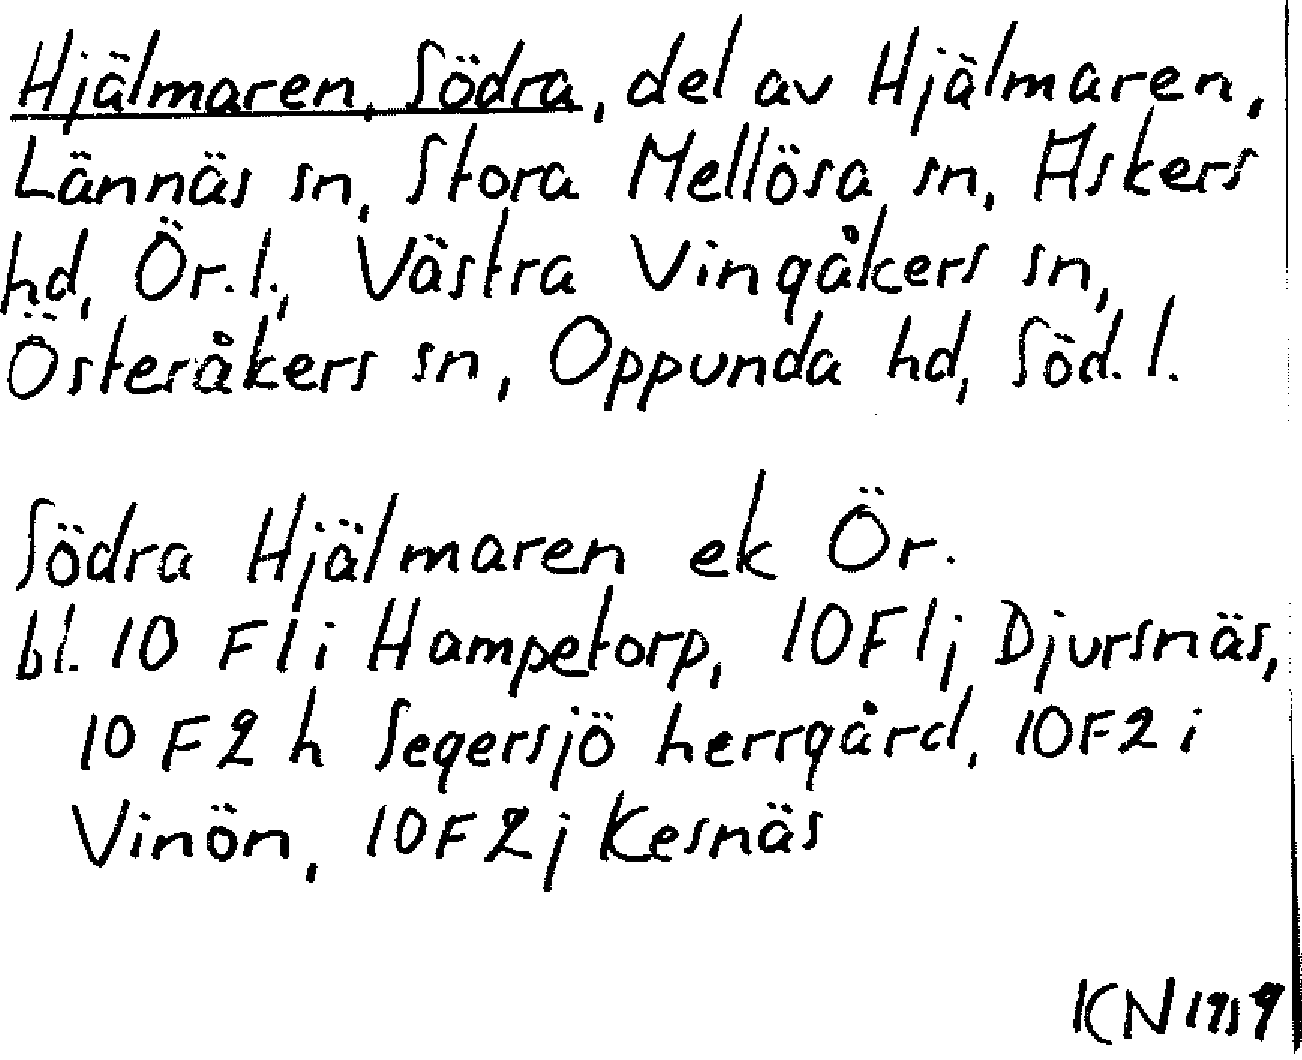 Hjälmaren, Södra, del av Hjälmaren,
Lännäs sn, Stora Mellösa sn, Askers
hd, Ör.l., Västra Vingåkers sn,
Österåkers sn, Oppunda hd, Söd.l.
Södra Hjälmaren ek Ör.
bl. 10 F 1 i Hampetorp, 10 F 1 j Djursnäs,
10 F 2 h Segersjö herrgård, 10 F 2 i
Vinön, 10 F 2 j Kesnäs
KN